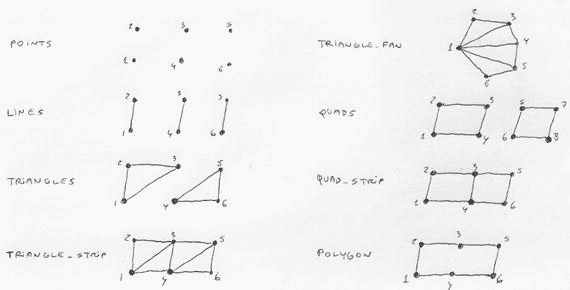 POINTS
2 3 5
1 4 6
LINES
2 3 5
1 4 6
TRIANGLES
2 3 5
1 4 6
TRIANGLE_STRIP
2 3 5
1 4 6
TRIANGLE_FAN
2 3
1 4
5
6
QUADS
2 3 5 7
1 4 6 8
QUAD_STRIP
2 3 5
1 4 6
POLYGON
2 3 5
1 4 6